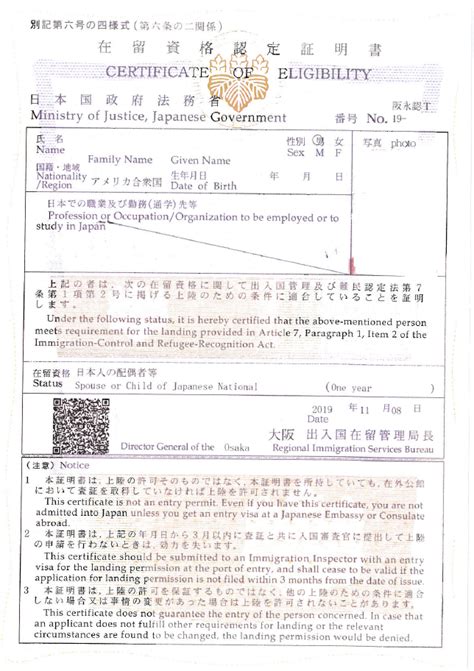 別記第六号の四様式(第六条の二関係)
在留資格認定証明書
CERTIFICATE OF ELIGIBILITY
日本国政府法務省
阪永認T
Ministry of Justice, Japanese Government 番号 No. 19-
氏名 性別 男 女 写真 photo
Name Sex M F
Family Name Given Name
国籍・地域 生年月日 年 月 日
Nationality アメリカ合衆国 Date of Birth
/Region
日本での職業及び勤務(通学)先等
Profession or Occupation/Organization to be employed or to
study in Japan
上記の者は、次の在留資格に関して出入国管理及び難民認定法第7
条第1項第2号に掲げる上陸のための条件に適合していることを証明
します。
Under the following status, it is hereby certified that the above-mentioned person
meets requirement for the landing provided in Article 7, Paragraph 1, Item 2 of the
Immigration-Control and Refugee-Recognition Act.
在留資格 日本人の配偶者等
Status Spouse or Child of Japanese National (One year )
2019 年 11 月 08 日
大阪 出入国在留管理局長
Director General of the Osaka Regional Immigration Services Bureau
(注意) Notice
1 本証明書は、上陸の許可そのものではなく、本証明書を所持していても、在外公館
において査証を取得していなければ上陸を許可されません。
This certificate is not an entry permit. Even if you have this certificate, you are not
admitted into Japan unless you get an entry visa at a Japanese Embassy or Consulate
abroad.
2 本証明書は、上記の年月日から3月以内に査証と共に入国審査官に提出して上陸
の申請を行わないときは、効力を失います。
This certificate should be submitted to an Immigration Inspector with an entry
visa for the landing permission at the port of entry, and shall cease to be valid if the
application for landing permission is not filed within 3 months from the date of issue.
3 本証明書は、上陸の許可を保証するものではなく、他の上陸のための条件に適合
しない場合又は事情の変更があった場合は上陸を許可されないことがあります。
This certificate does not guarantee the entry of the person concerned. In case that
an applicant does not fulfill other requirements for landing or the relevant
circumstances are found to be changed, the landing permission would be denied.